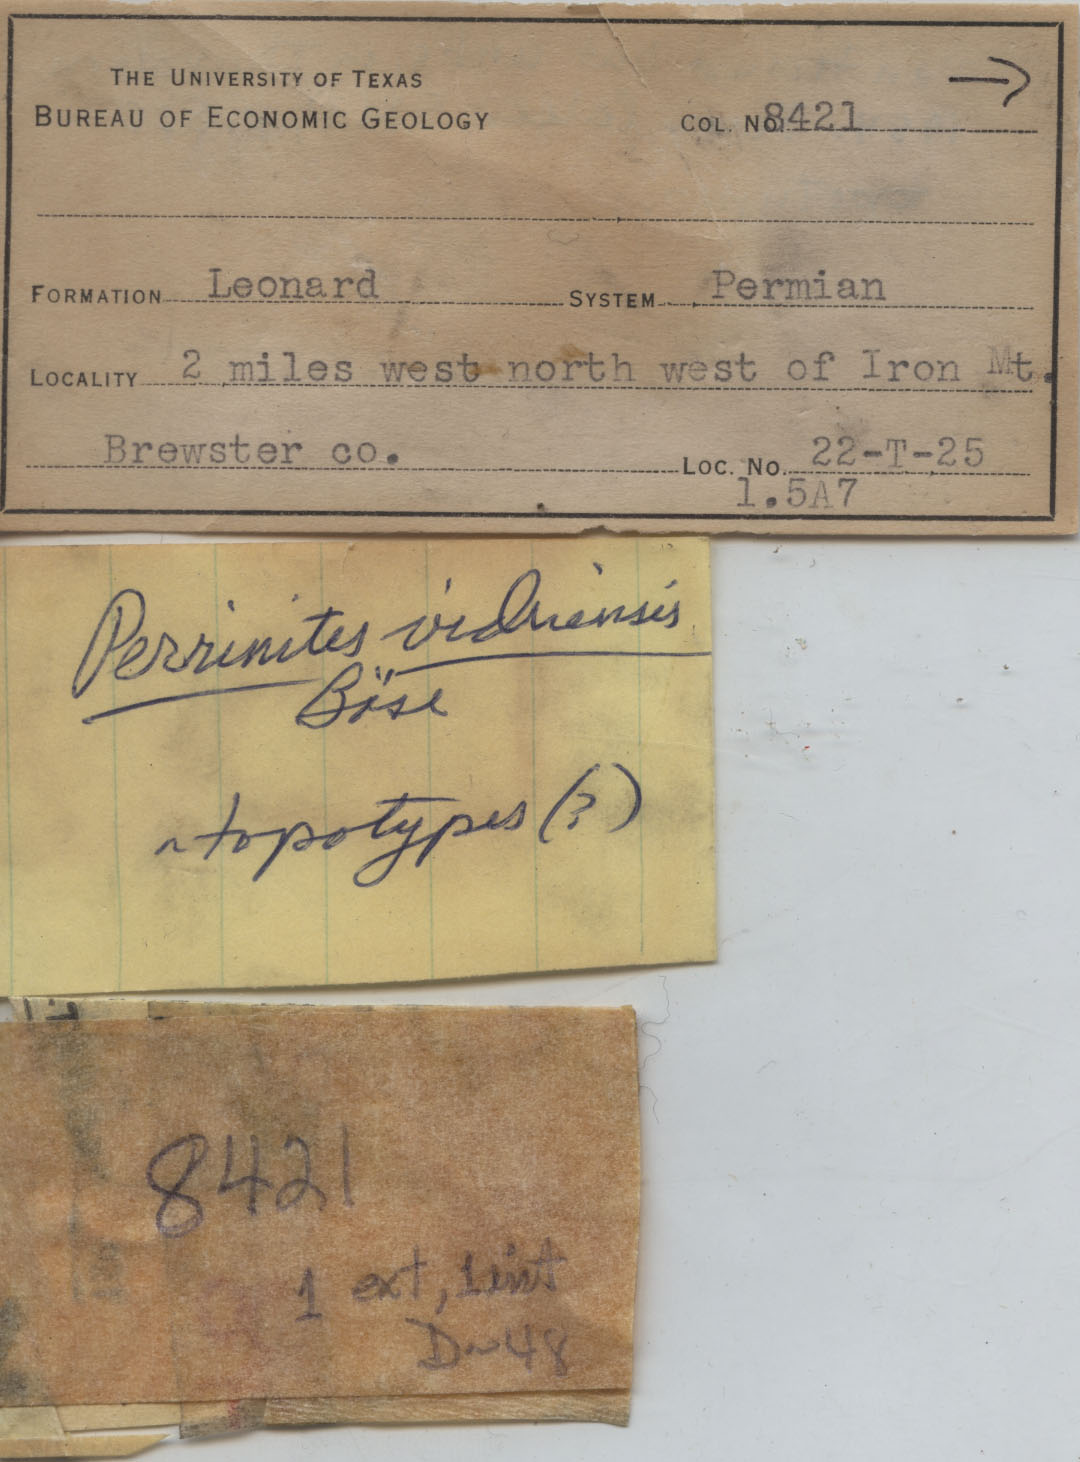 →
THE UNIVERSITY OF TEXAS
BUREAU OF ECONOMIC GEOLOGY
COL. NO. 8421
FORMATION Leonard SYSTEM Permian
LOCALITY 2 miles west north west of Iron Mt.
Brewster co. LOC. NO. 22-T-25
1.5A7
Perrinites vidriensis
Böse
~topotypes (?)
8421
1 ext, 1 int
D~48